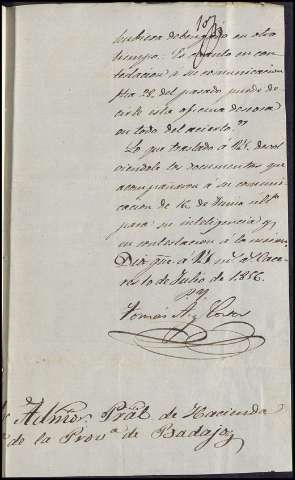 hubiese debengado en otro
tiempo. Es cuanto en con
testacion á su comunicacion
fha 28 del pasado puedo de
cirle esta oficina deseosa
en todo del acierto."
Lo que traslado á V.S. devol
viendole los documentos que
acompañaron á su comuni
cacion de 16 de Junio ultº
para su inteligencia y
en contestacion á la misma.
Dios gue á V.S. ms. as. Cace
res 10 de Julio de 1856.
Tomas A. y
Admor. Pral. de Hacienda
de la Prova. de Badajoz